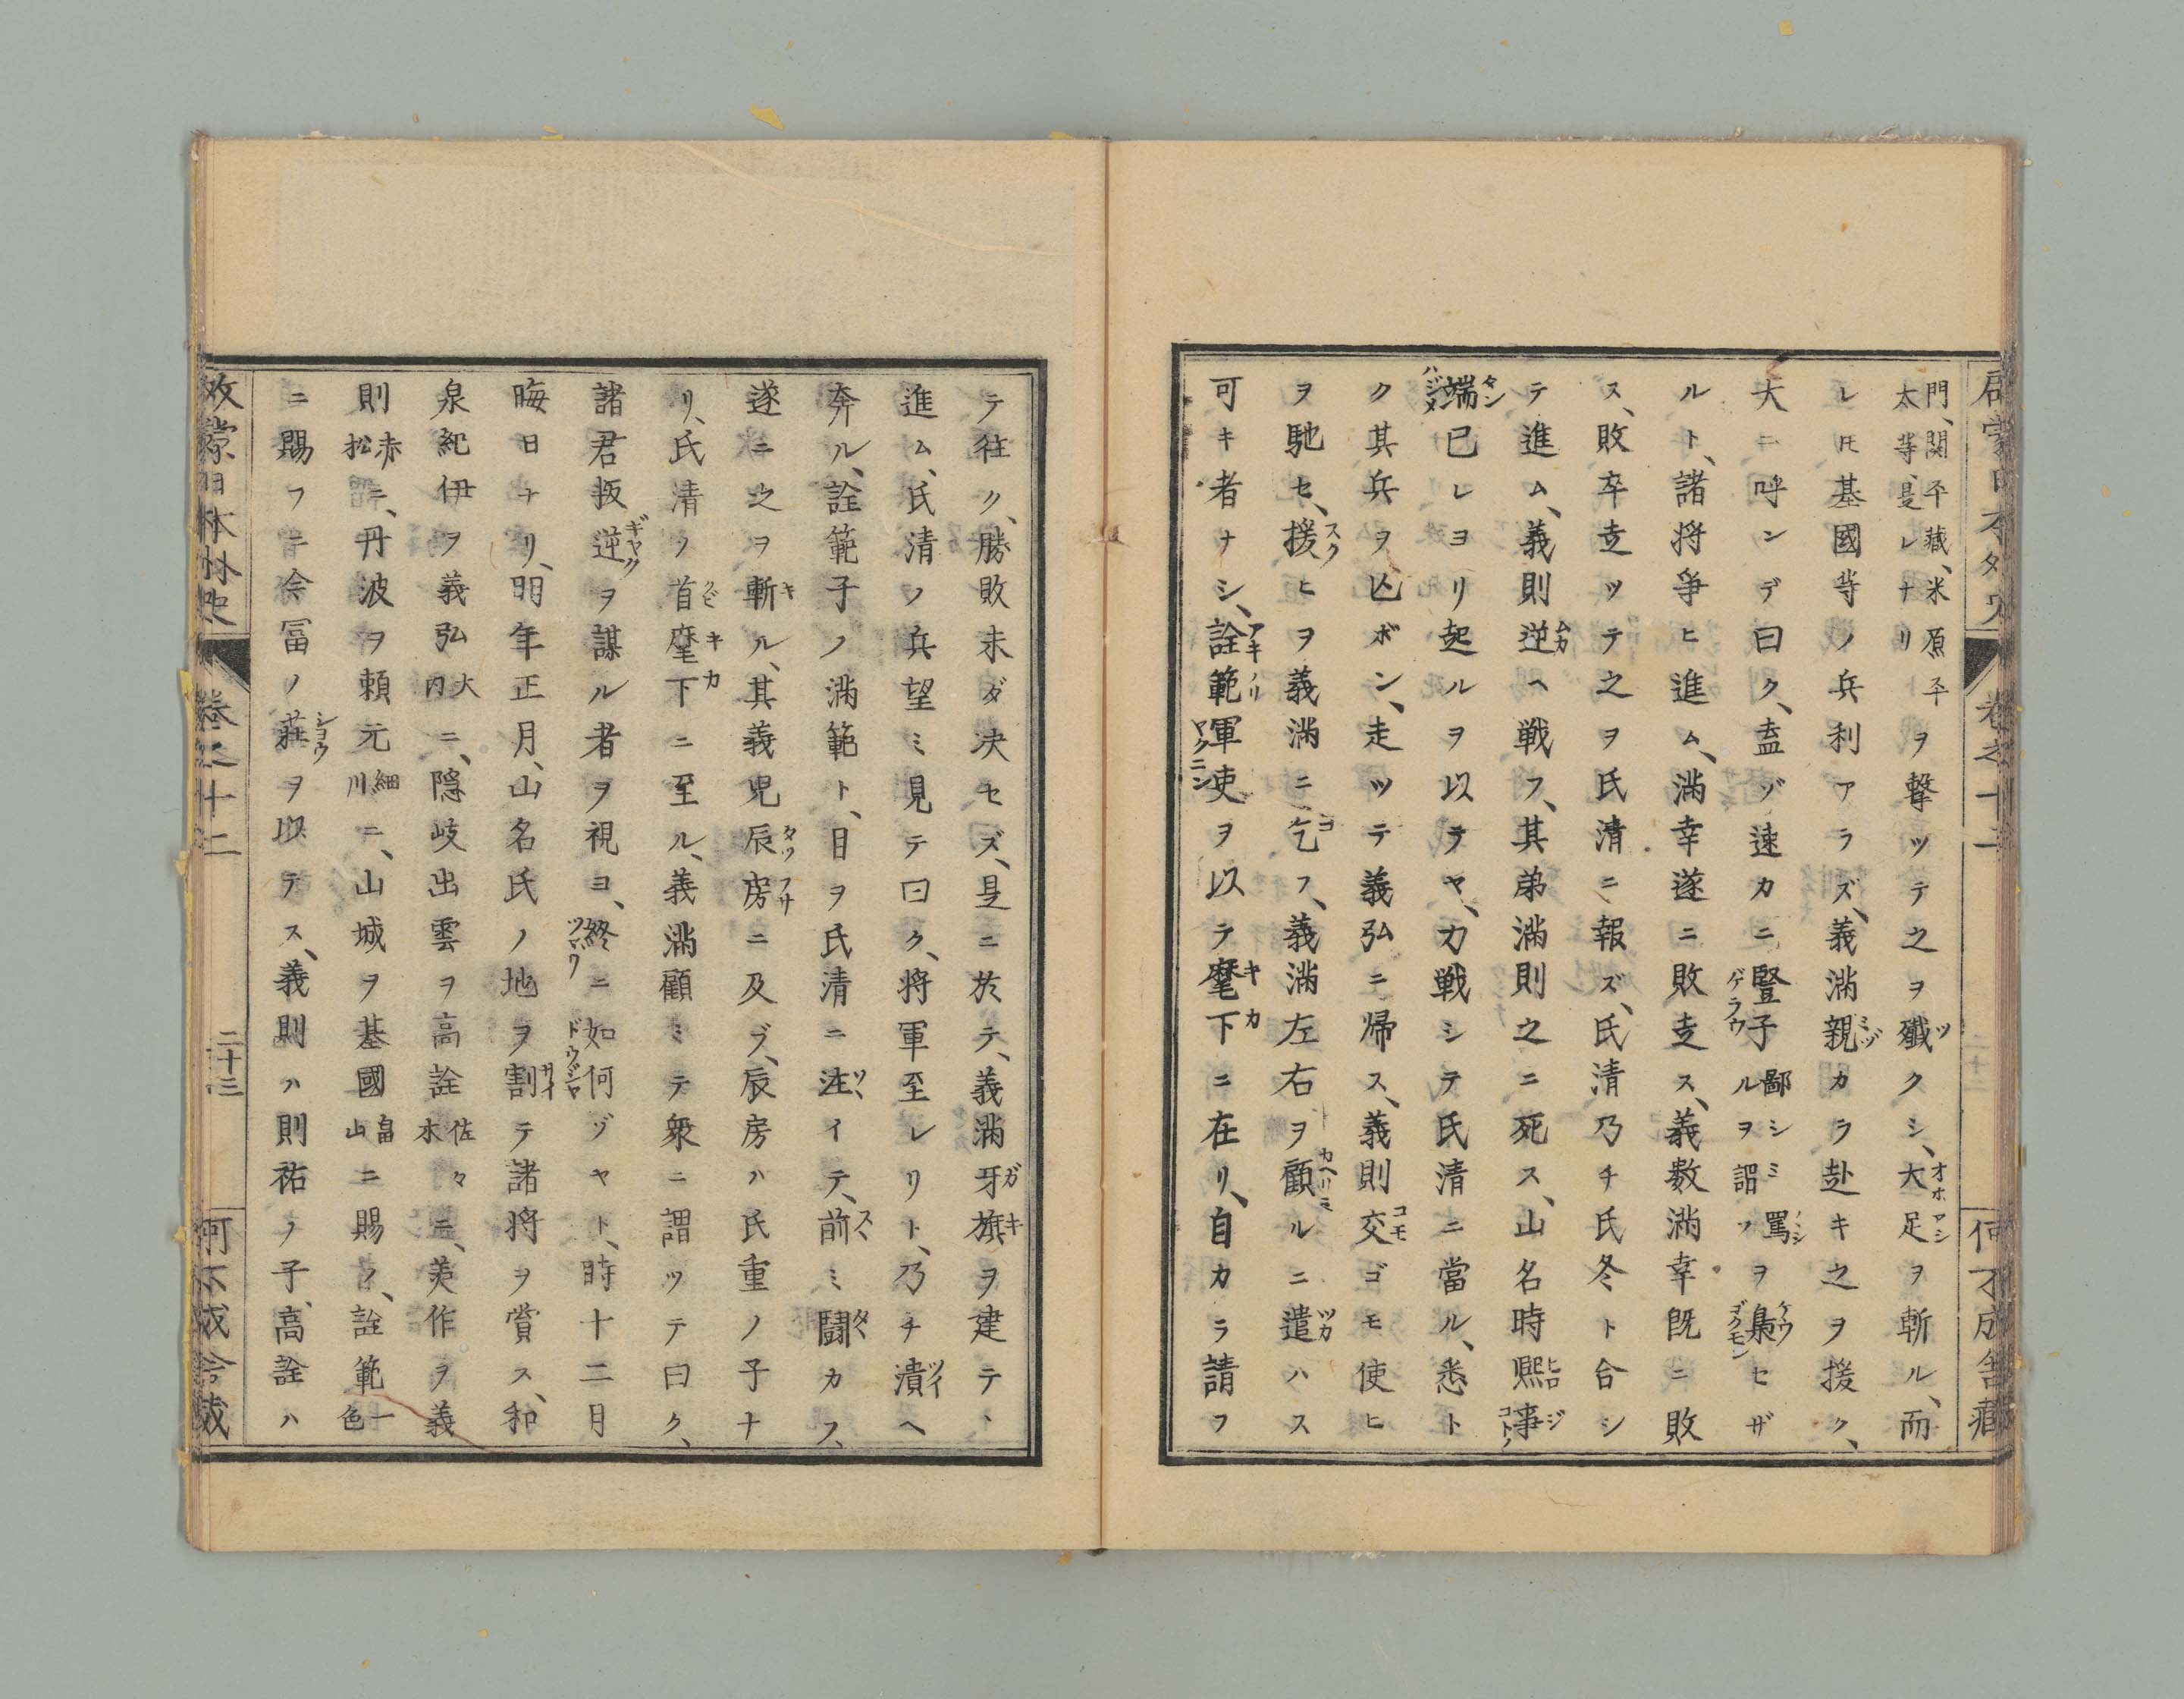 啓蒙日本外史
巻之十二
二十三
何不成舎蔵
門、関平蔵、米原平
太等、是レナリ
ヲ撃ツテ之ヲ殲クシ、大足ヲ斬ル、而
レ𪜈基國等ノ兵利アラズ、義満親カラ赴キ之ヲ援ク、
大ニ呼ンデ曰ク、盍ゾ速カニ豎子
鄙シミ罵
ルヲ謂フ
ヲ梟セザ
ルト、諸将争ヒ進ム、満幸遂ニ敗走ス、義数満幸既ニ敗
ス、敗卒走ツテ之ヲ氏清ニ報ズ、氏清乃チ氏冬ト合シ
テ進ム、義則逆ヘ戦フ、其弟満則之ニ死ス、山名時熈事
端已レヨリ起ルヲ以テヤ、力戦シテ氏清ニ當ル、悉ト
ク其兵ヲ亾ボン、走ツテ義弘ニ帰ス、義則交ゴモ使ヒ
ヲ馳セ、援ヒヲ義満ニ乞フ、義満左右ヲ顧ルニ遣ハス
可キ者ナシ、詮範軍使ヲ以テ麾下ニ在リ、自カラ請フ
テ往ク、勝敗未ダ决セズ、是ニ於テ、義満牙旗ヲ建テヽ
進ム、氏清ノ兵望ミ見テ曰ク、将軍至レリト、乃チ潰ヘ
奔ル、詮範子ノ満範ト、目ヲ氏清ニ注イテ、前ミ闘カフ、
遂ニ之ヲ斬ル、其義児辰房ニ及ブ、辰房ハ氏重ノ子ナ
リ、氏清ノ首麾下ニ至ル、義満顧ミテ衆ニ謂ツテ曰ク、
諸君扳逆ヲ謀ル者ヲ視ヨ、終ニ如何ゾヤト、時十二月
晦日ナリ、明年正月、山名氏ノ地ヲ割テ諸将ヲ賞ス、和
泉紀伊ヲ義弘
大
内
ニ、隠岐出雲ヲ高詮
佐々
木
ニ、美作ヲ義
則
赤
松
ニ、丹波ヲ頼元
細
川
ニ、山城ヲ基國
畠
山
ニ賜フ、詮範
一
色
ニ賜フニ今冨ノ荘ヲ以テス、義則ハ則祐ノ子、高詮ハ
啓蒙日本外史
巻之十二
二十三
何不成舎蔵